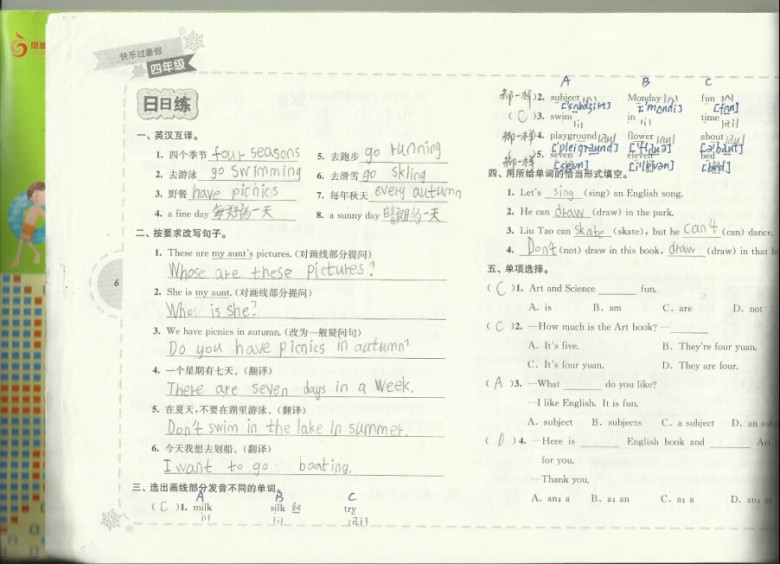 快乐过暑假
四年级
日日练
一、英汉互译。
1. 四个季节 four seasons 5. 去跑步 go running
2. 去游泳 go Swimming 6. 去滑雪 go skling
3. 野餐 have picnics 7. 每年秋天 every autumn
4. a fine day 8. a sunny day 晴朗的一天
二、按要求改写句子。
1. These are my aunt's pictures. (对画线部分提问)
Whose are these pictures?
2. She is my aunt. (对画线部分提问)
Who is she?
3. We have picnics in autumn. (改为一般疑问句)
Do you have picnics in autumn?
4. 一个星期有七天。(翻译)
There are seven days in a Week.
5. 在夏天,不要在湖里游泳。(翻译)
Don't swim in the lake In summer.
6. 今天我想去划船。(翻译)
I want to go boating.
三、选出画线部分发音不同的单词。
A B C
( C )1. milk silk try
6
A B C
2. subject Monday fun
( C )3. swim in time
4. playground flower about
5. seven eleven bed
四、用所给单词的恰当形式填空。
1. Let's sing (sing) an English song.
2. He can draw (draw) in the park.
3. Liu Tao can skate (skate), but he can't (can) dance.
4. Don't (not) draw in this book. draw (draw) in that
五、单项选择。
( C )1. Art and Science fun.
A. is B. am C. are D. not
( C )2. —How much is the Art book? —
A. It's five. B. They're four yuan.
C. It's four yuan. D. They are four.
( A )3. —What do you like?
—I like English. It is fun.
A. subject B. subjects C. a subject D. an
( D )4. —Here is English book and
for you.
—Thank you.
A. an; a B. a; an C. a; a D. an;